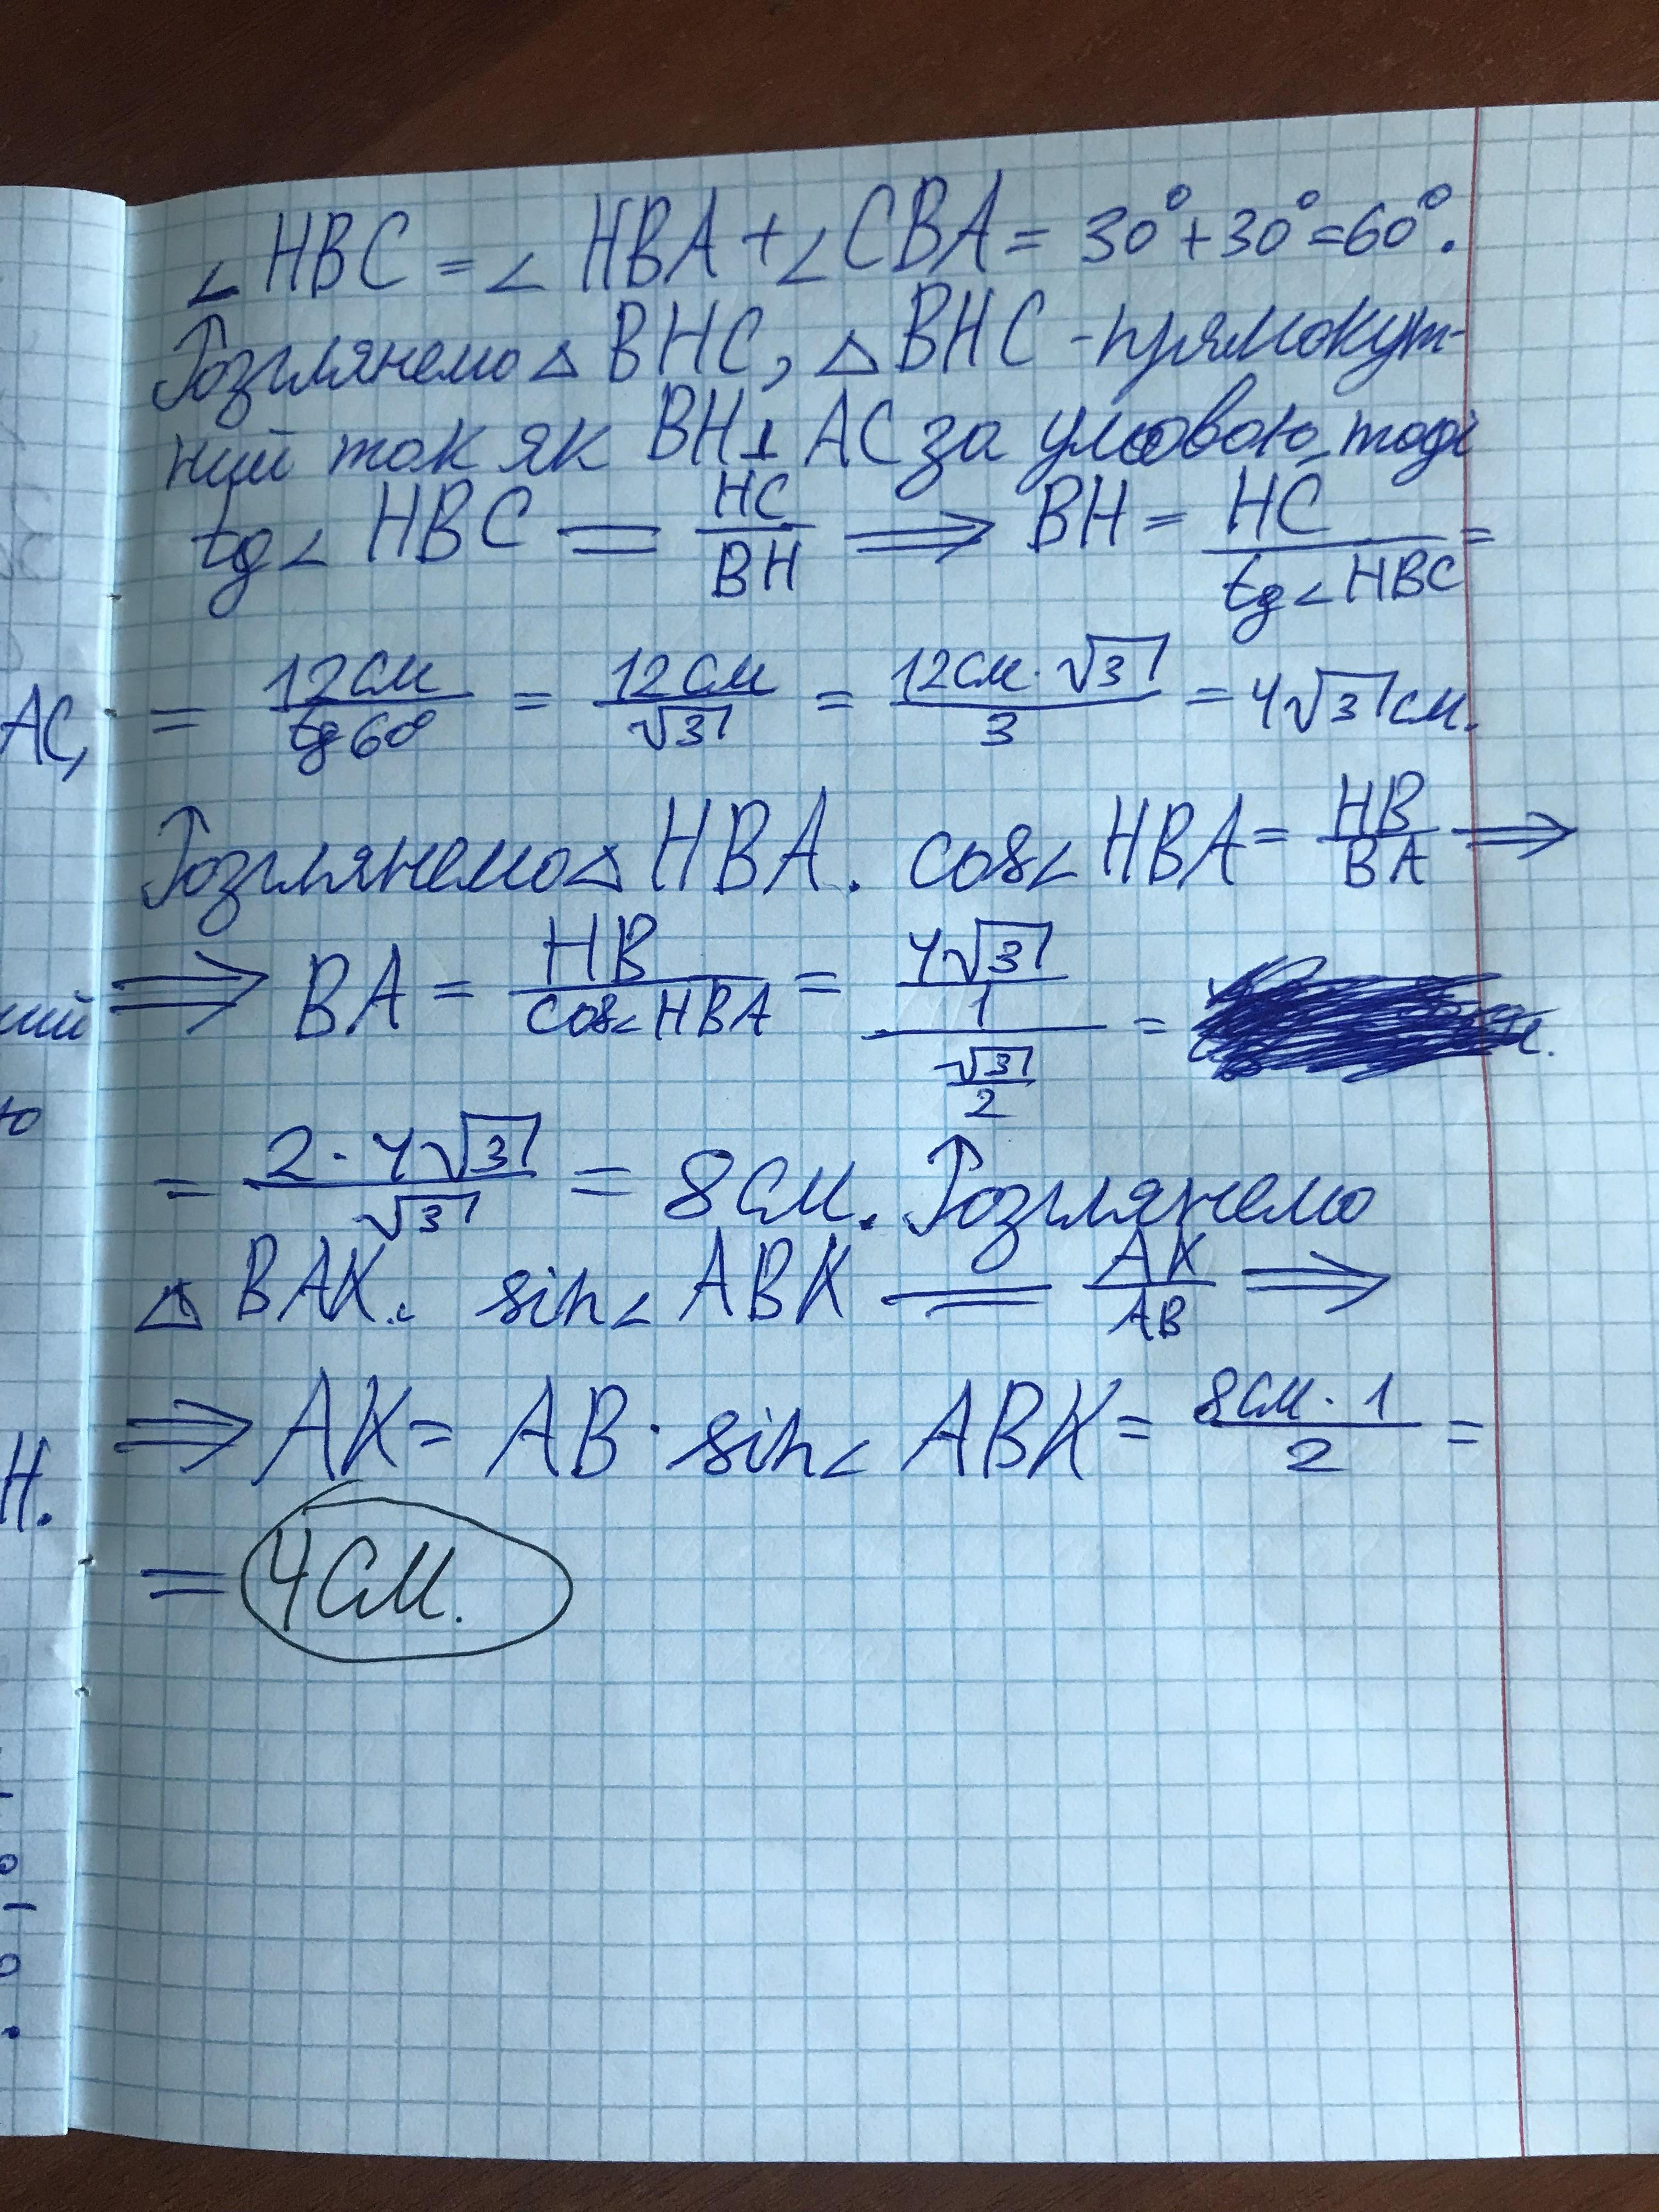 ∠HBC = ∠HBA + ∠CBA = 30° + 30° = 60°.
Розглянемо △BHC, △BHC - прямокут-
ний так як BH ⊥ AC за умовою, тоді
tg∠HBC = HC/BH ⟹ BH = HC/tg∠HBC =
AC, = 12см/tg60° = 12см/√3 = 12см·√3/3 = 4√3 см.
Розглянемо △HBA. cos∠HBA = HB/BA ⟹
⟹ BA = HB/cos∠HBA = (4√3/1)/(√3/2) =
ний
ю
= 2·4√3/√3 = 8см. Розглянемо
△BAK. sin∠ABK = AK/AB ⟹
⟹ AK = AB · sin∠ABK = 8см·1/2 =
H.
= 4см.